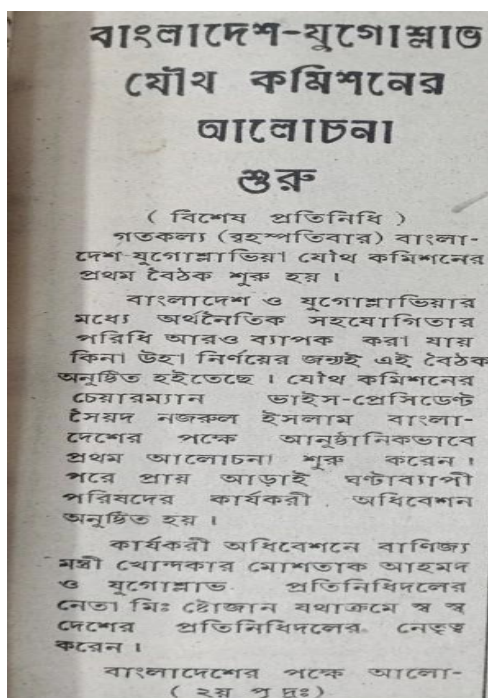 বাংলাদেশ-যুগোশ্লাভ
যৌথ কমিশনের
আলোচনা
শুরু
( বিশেষ প্রতিনিধি )
গতকল্য (বৃহস্পতিবার) বাংলা-
দেশ-যুগোশ্লাভিয়া যৌথ কমিশনের
প্রথম বৈঠক শুরু হয় ।
বাংলাদেশ ও যুগোশ্লাভিয়ার
মধ্যে অর্থনৈতিক সহযোগিতার
পরিধি আরও ব্যাপক করা যায়
কিনা উহা নির্ণয়ের জন্যই এই বৈঠক
অনুষ্ঠিত হইতেছে । যৌথ কমিশনের
চেয়ারম্যান ভাইস-প্রেসিডেন্ট
সৈয়দ নজরুল ইসলাম বাংলা-
দেশের পক্ষে আনুষ্ঠানিকভাবে
প্রথম আলোচনা শুরু করেন ।
পরে প্রায় আড়াই ঘণ্টাব্যাপী
পরিষদের কার্যকরী অধিবেশন
অনুষ্ঠিত হয় ।
কার্যকরী অধিবেশনে বাণিজ্য
মন্ত্রী খোন্দকার মোশতাক আহমদ
ও যুগোশ্লাভ প্রতিনিধিদলের
নেতা মিঃ ষ্টোজান যথাক্রমে স্ব স্ব
দেশের প্রতিনিধিদলের নেতৃত্ব
করেন ।
বাংলাদেশের পক্ষে আলো-
( ২য় পৃ দ্রঃ )